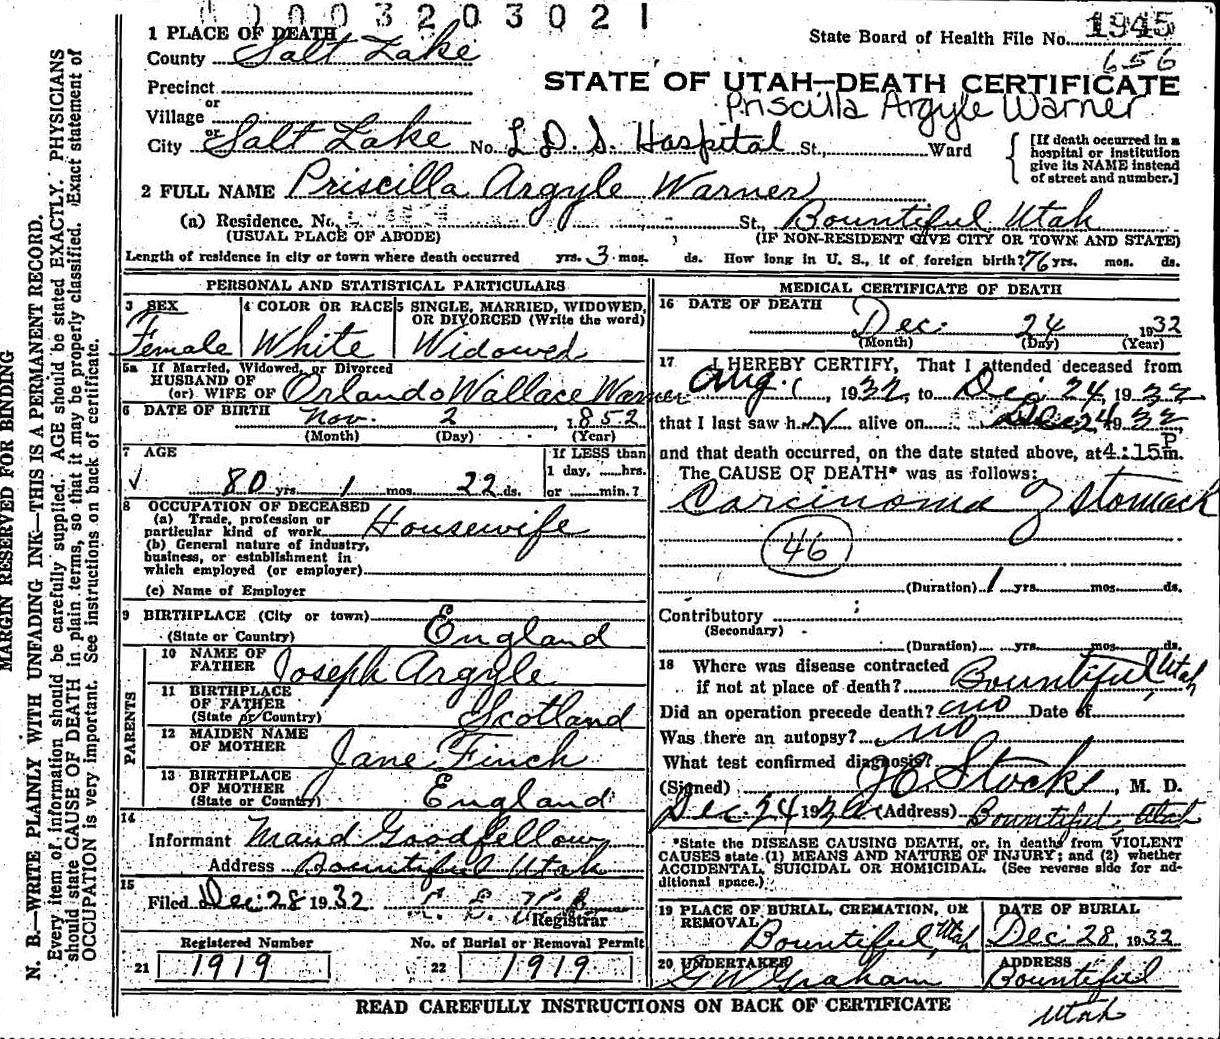 0000320302 1
1 PLACE OF DEATH
County Salt Lake
State Board of Health File No. 1945
656
Precinct
or
Village
STATE OF UTAH—DEATH CERTIFICATE
Priscilla Argyle Warner
or
City Salt Lake No. L.D.S. Hospital St., Ward
[If death occurred in a hospital or institution give its NAME instead of street and number.]
2 FULL NAME Priscilla Argyle Warner
(a) Residence. No. St., Bountiful Utah
(USUAL PLACE OF ABODE) (IF NON-RESIDENT GIVE CITY OR TOWN AND STATE)
Length of residence in city or town where death occurred yrs. 3 mos. ds. How long in U. S., if of foreign birth? 76 yrs. mos. ds.
PERSONAL AND STATISTICAL PARTICULARS
3 SEX 4 COLOR OR RACE 5 SINGLE, MARRIED, WIDOWED,
OR DIVORCED (Write the word)
Female White Widowed
5a If Married, Widowed, or Divorced
HUSBAND OF
(or) WIFE OF Orlando Wallace Warner
6 DATE OF BIRTH Nov. 2, 1852
(Month) (Day) (Year)
7 AGE If LESS than
1 day, ......hrs.
80 yrs. 1 mos. 22 ds. or ......min.?
8 OCCUPATION OF DECEASED
(a) Trade, profession or
particular kind of work Housewife
(b) General nature of industry,
business, or establishment in
which employed (or employer)
(c) Name of Employer
9 BIRTHPLACE (City or town)
(State or Country) England
PARENTS
10 NAME OF
FATHER Joseph Argyle
11 BIRTHPLACE
OF FATHER
(State or Country) Scotland
12 MAIDEN NAME
OF MOTHER Jane Finch
13 BIRTHPLACE
OF MOTHER
(State or Country) England
14
Informant Maud Goodfellow
Address Bountiful Utah
15
Filed Dec. 28 1932
Registrar
Registered Number No. of Burial or Removal Permit
21 1919 22 1919
MEDICAL CERTIFICATE OF DEATH
16 DATE OF DEATH
Dec. 24 1932
(Month) (Day) (Year)
17 I HEREBY CERTIFY, That I attended deceased from
Aug. 1, 1932, to Dec. 24, 1932
that I last saw her alive on Dec 24 1932
and that death occurred, on the date stated above, at 4:15 P m.
The CAUSE OF DEATH* was as follows:
Carcinoma of Stomach
46
(Duration) 1 yrs. mos. ds.
Contributory
(Secondary)
(Duration) yrs. mos. ds.
18 Where was disease contracted
if not at place of death? Bountiful, Utah
Did an operation precede death? no Date of
Was there an autopsy? no
What test confirmed diagnosis?
(Signed) Stocks, M. D.
Dec 24 19 (Address) Bountiful, Utah
*State the DISEASE CAUSING DEATH, or, in deaths from VIOLENT
CAUSES state (1) MEANS AND NATURE OF INJURY; and (2) whether
ACCIDENTAL, SUICIDAL OR HOMICIDAL. (See reverse side for ad-
ditional space.)
19 PLACE OF BURIAL, CREMATION, OR
REMOVAL DATE OF BURIAL
Bountiful, Utah Dec. 28, 1932
20 UNDERTAKER ADDRESS
G W Graham Bountiful
Utah
READ CAREFULLY INSTRUCTIONS ON BACK OF CERTIFICATE
MARGIN RESERVED FOR BINDING
N. B.—WRITE PLAINLY WITH UNFADING INK—THIS IS A PERMANENT RECORD.
Every item of information should be carefully supplied. AGE should be stated EXACTLY. PHYSICIANS
should state CAUSE OF DEATH in plain terms, so that it may be properly classified. Exact statement of
OCCUPATION is very important. See instructions on back of certificate.